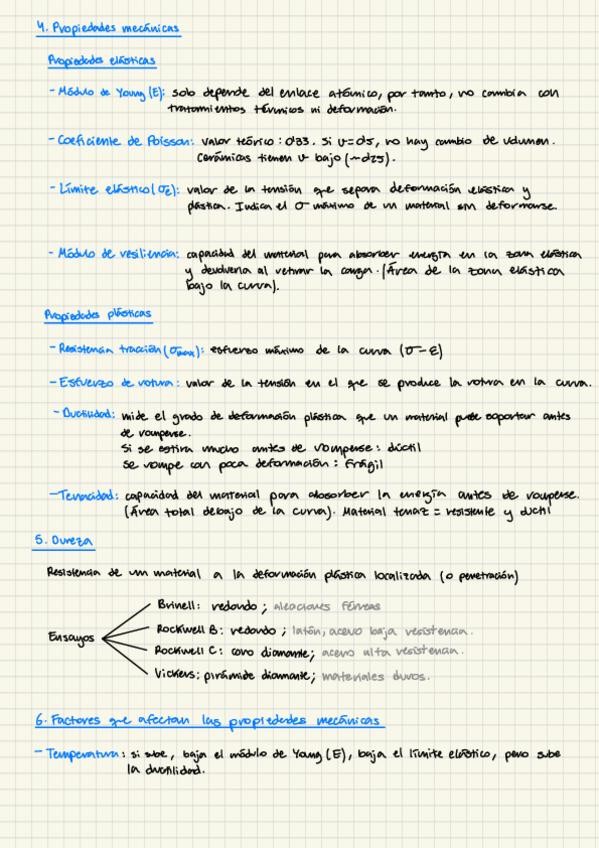 4. Propiedades mecánicas
Propiedades elásticas
- Módulo de Young (E): solo depende del enlace atómico, por tanto, no cambia con
tratamientos térmicos ni deformación.
- Coeficiente de Poisson: valor teórico: 0'33. Si ν=0'5, no hay cambio de volumen.
Cerámicas tienen ν bajo (~0'25).
- Límite elástico (σE): valor de la tensión que separa deformación elástica y
plástica. Indica el σ máximo de un material sin deformarse.
- Módulo de resiliencia: capacidad del material para absorber energía en la zona elástica
y devolverla al retirar la carga. (Área de la zona elástica
bajo la curva).
Propiedades plásticas
- Resistencia tracción (σmax): esfuerzo máximo de la curva (σ-ε)
- Esfuerzo de rotura: valor de la tensión en el que se produce la rotura en la curva.
- Ductilidad: mide el grado de deformación plástica que un material puede soportar antes
de romperse.
Si se estira mucho antes de romperse: dúctil
se rompe con poca deformación: frágil
- Tenacidad: capacidad del material para absorber la energía antes de romperse.
(Área total debajo de la curva). Material tenaz = resistente y dúctil
5. Dureza
Resistencia de un material a la deformación plástica localizada (o penetración)
Brinell: redondo; aleaciones férreas
Rockwell B: redondo; latón, acero baja resistencia.
Ensayos
Rockwell C: cono diamante; acero alta resistencia.
Vickers: pirámide diamante; materiales duros.
6. Factores que afectan las propiedades mecánicas
- Temperatura: si sube, baja el módulo de Young (E), baja el límite elástico, pero sube
la ductilidad.